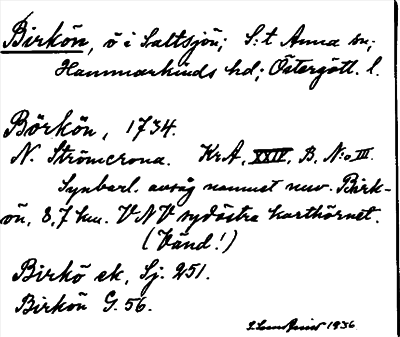 Birkön, ö i Saltsjön; S:t Anna sn;
Hammarkinds hd; Östergötl. l.
Börkön, 1734.
N. Strömcrona. Kr.A, XXIV, B, N:o III.
Synbarl. avsåg namnet nuv. Birk-
ön, 8,7 km. VNV sydöstra karthörnet.
(Vänd!)
Birkö ek, Sj. 251.
Birkön G. 56.
1936